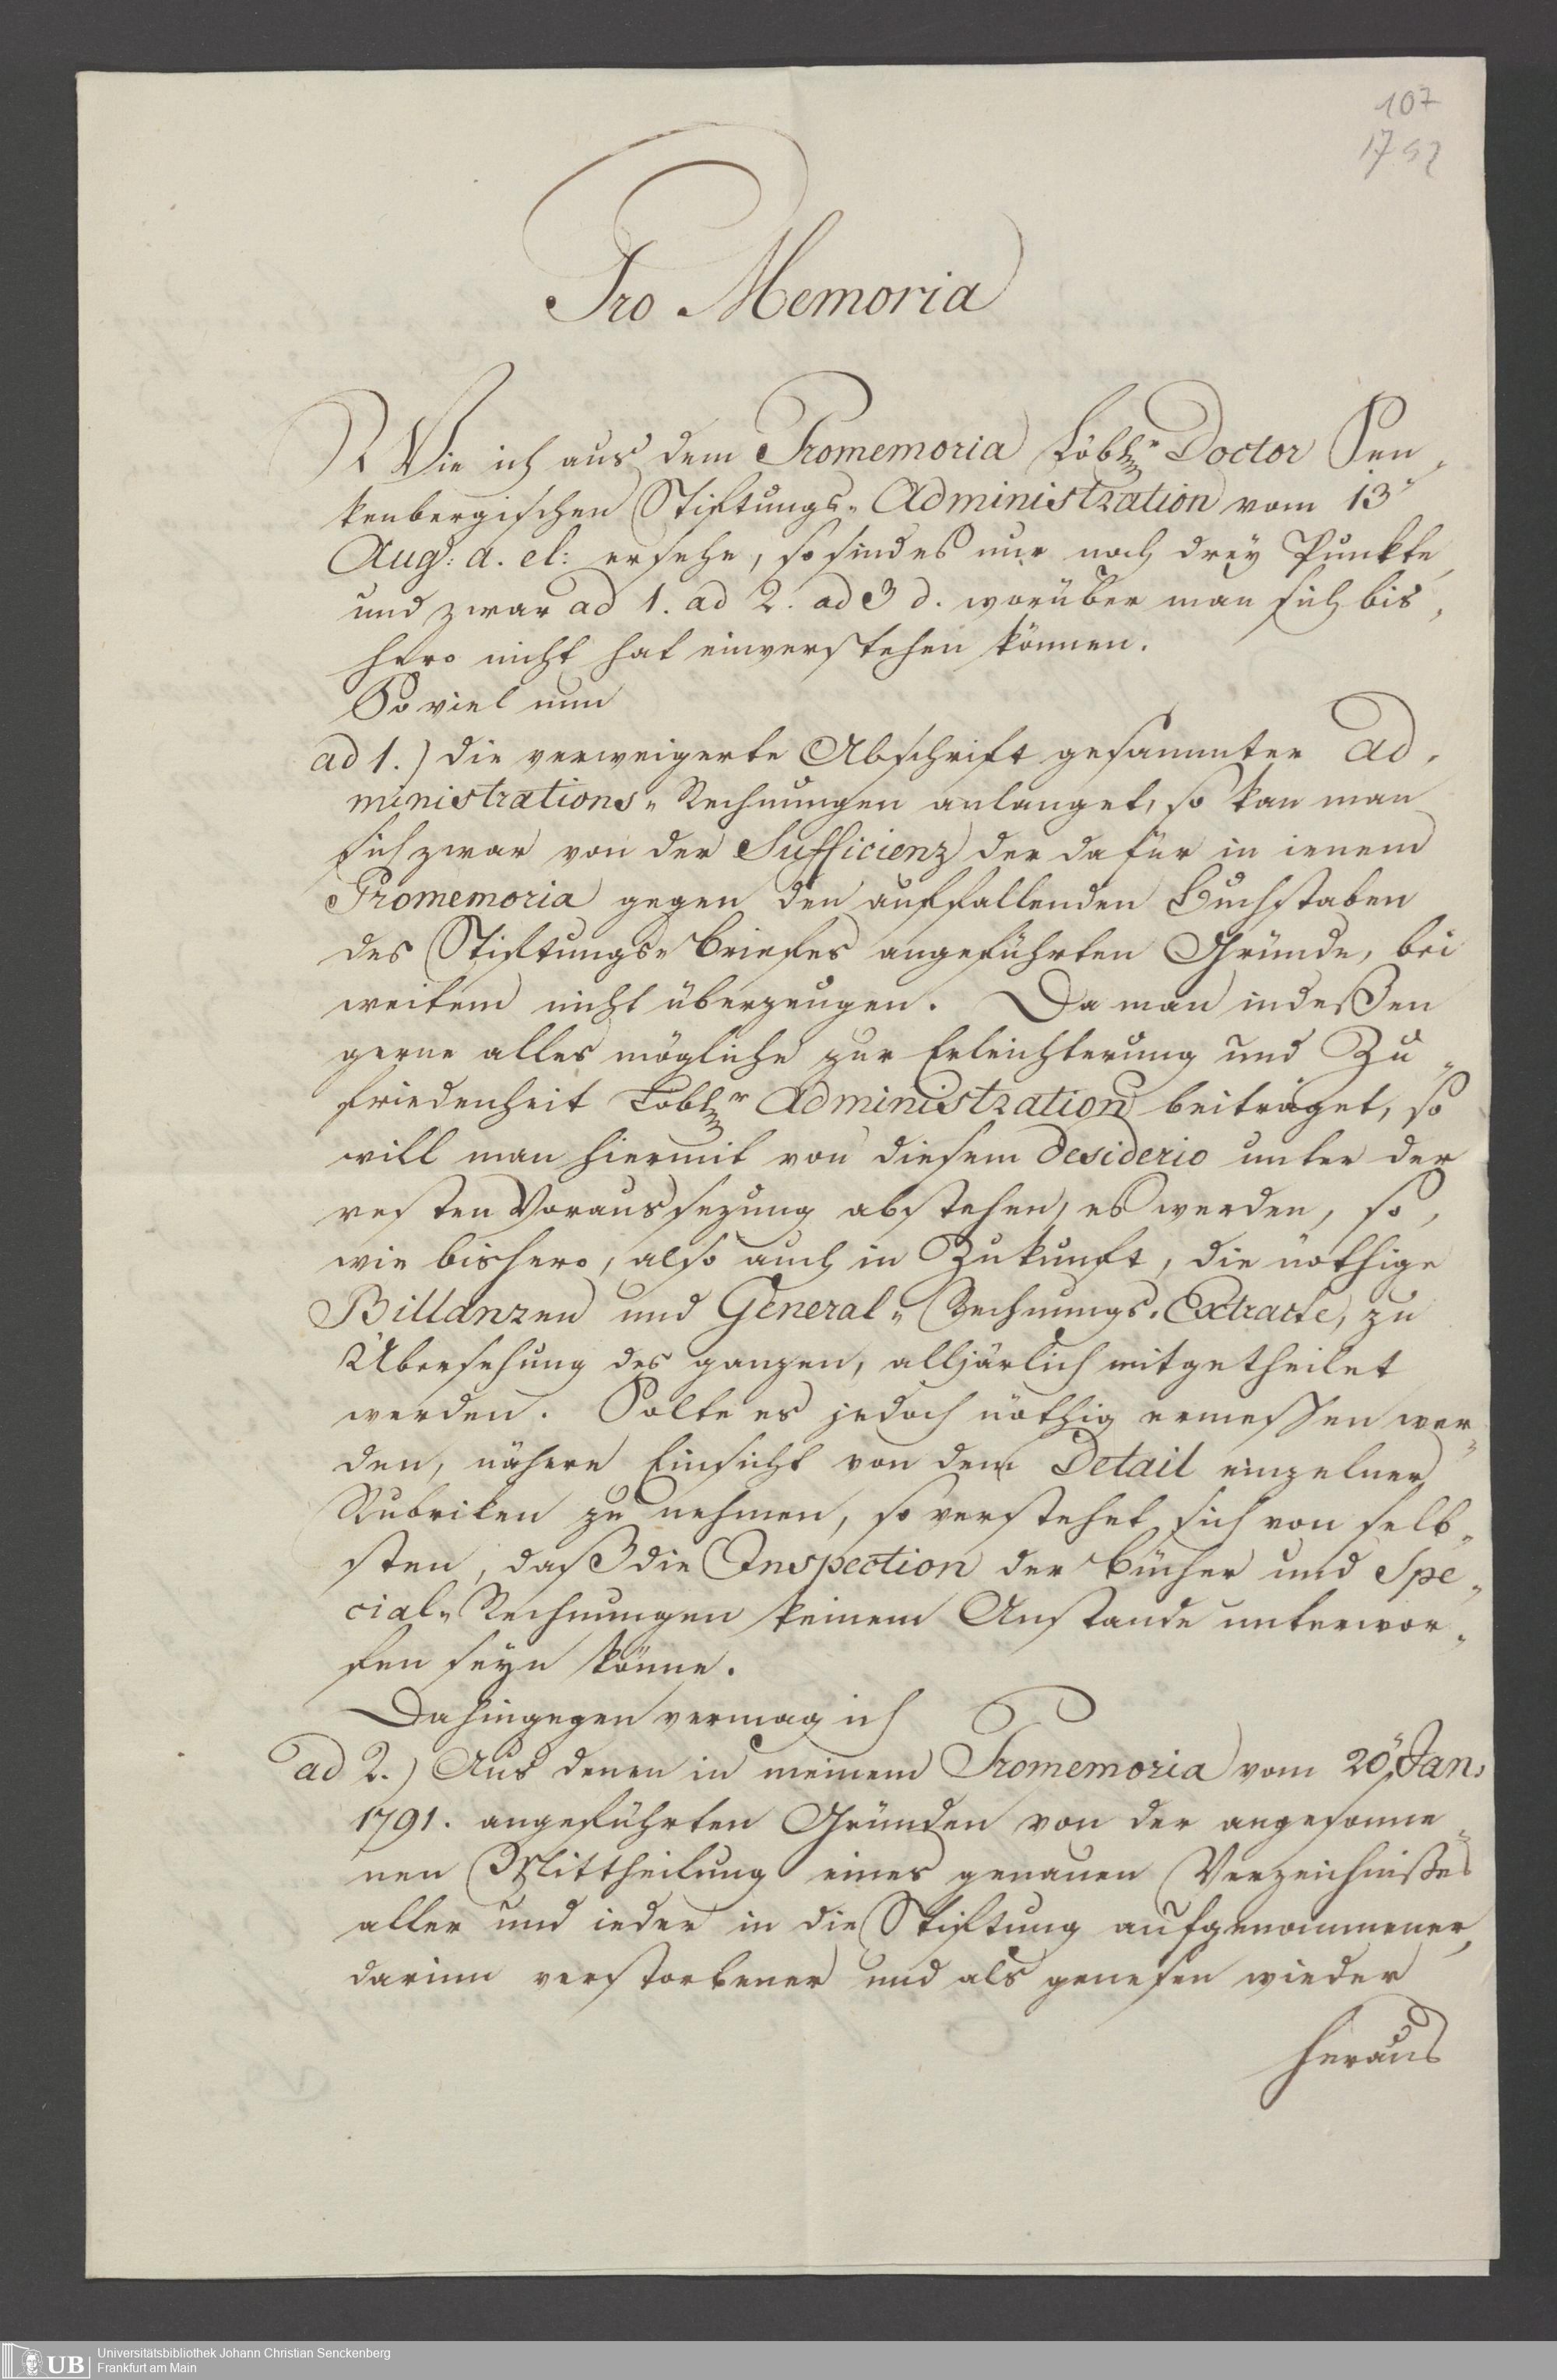 107
1792
Pro Memoria
Wie ich aus dem Promemoria Löbl.r Doctor Sen„
kenbergischen Stiftungs„Administration vom 13„
Aug: a. el: ersehe, so sind es nur noch drey Punkte,
und zwar ad 1. ad 2. ad 3 d. worüber man sich bis„
hero nicht hat einverstehen können.
So viel nun
ad 1.) die verweigerte Abschrift gesammter Ad„
ministrations„Rechnungen anlanget, so kan man
sich zwar von der Sufficienz der dafür in ienem
Promemoria gegen den auffallenden Buchstaben
des Stiftungs„Briefes angeführten Gründe, bei
weitem nicht überzeugen. Da man indeßen
gerne alles mögliche zur Erleichterung und Zu„
friedenheit Löbl.r Administration beiträget, so
will man hiermit von diesem Desiderio unter der
vesten Voraussezung abstehen, es werden, so,
wie bishero, also auch in Zukunft, die nöthige
Billanzen und General„Rechnungs„Extracte, zu
Übersehung des ganzen, alljärlich mitgetheilet
werden. Solte es jedoch nöthig ermessen wer„
den, nähere Einsicht von dem Detail einzelner
Rubriken zu nehmen, so verstehet sich von selb„
sten, daß die Inspection der Bücher und Spe„
cial„Rechnungen keinem Anstande unterwor„
fen seyn könne.
Dahingegen vermag ich
ad 2.) Aus denen in meinem Promemoria vom 20„ Jan:
1791. angeführten Gründen von der angesonne„
nen Mittheilung eines genauen Verzeichnißes
aller und ieder in die Stiftung aufgenommener,
darinn verstorbener und als genesen wieder
heraus
UB
Universitätsbibliothek Johann Christian Senckenberg
Frankfurt am Main